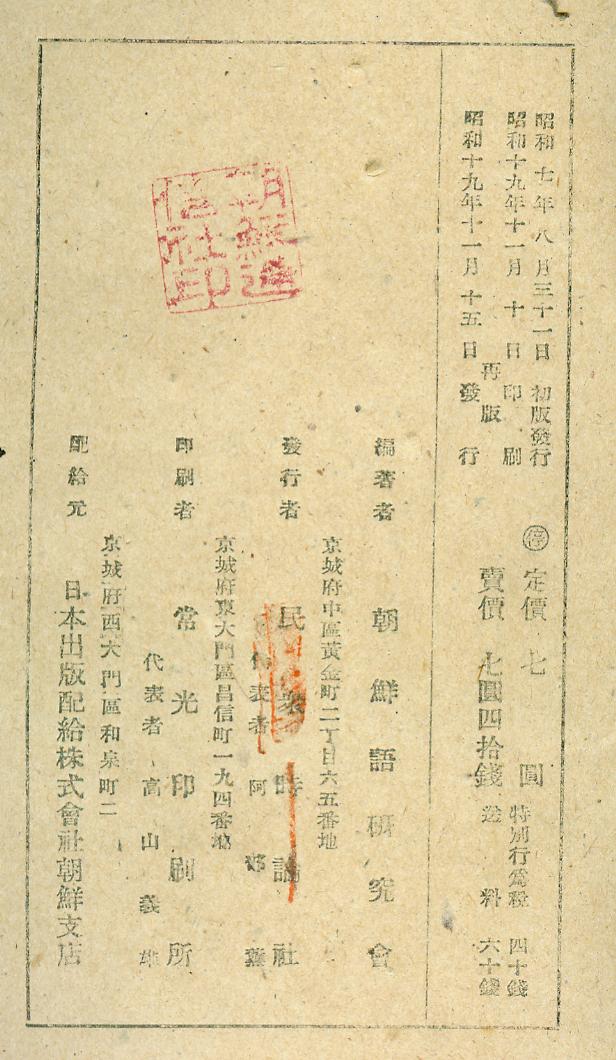 昭和七年八月三十一日 初版發行
昭和十九年十一月 十 日印 刷
再版
昭和十九年十一月 十五日發 行
㊡ 定價 七 圓
特別行爲稅 四十錢
賣價 七圓四拾錢
送 料 六十錢
編著者 朝鮮語硏究會
京城府中區黃金町二丁目六五番地
發行者 民衆時論社
代表者 阿部 薰
京城府東大門區昌信町一九四番地
印刷者 常光印刷所
代表者 高山義雄
京城府西大門區和泉町二
配給元 日本出版配給株式會社朝鮮支店
社印